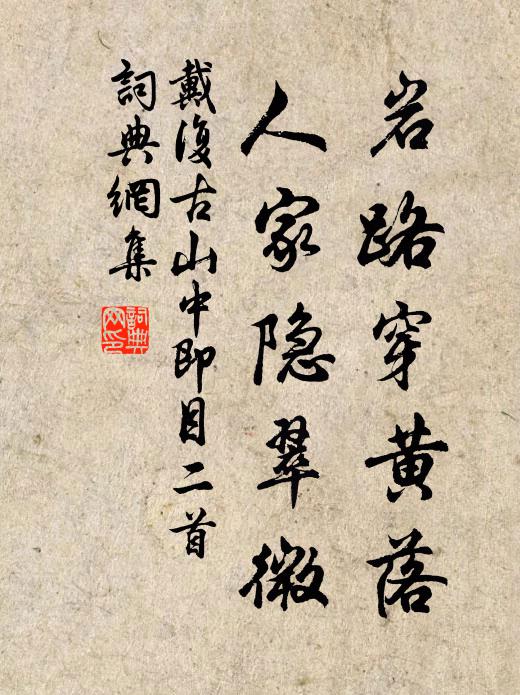 岩路穿黄落
人家隐翠微
戴復古山中即目二首
詞典網集
詞典
网印